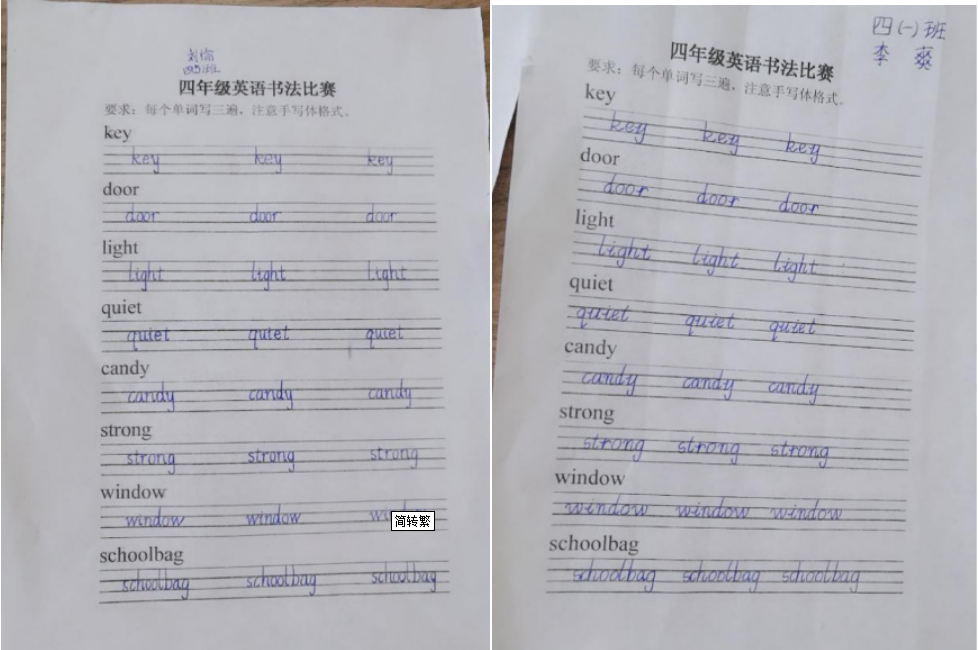 刘
四班
四年级英语书法比赛
要求：每个单词写三遍，注意手写体格式。
key
key key key
door
door door door
light
light light light
quiet
quiet quiet quiet
candy
candy candy candy
strong
strong strong strong
window
window window
简转繁
schoolbag
schoolbag schoolbag schoolbag
四(一)班
李 燊
四年级英语书法比赛
要求：每个单词写三遍，注意手写体格式。
key
key key key
door
door door door
light
light light light
quiet
quiet quiet quiet
candy
candy candy candy
strong
strong strong strong
window
window window window
schoolbag
schoolbag schoolbag schoolbag